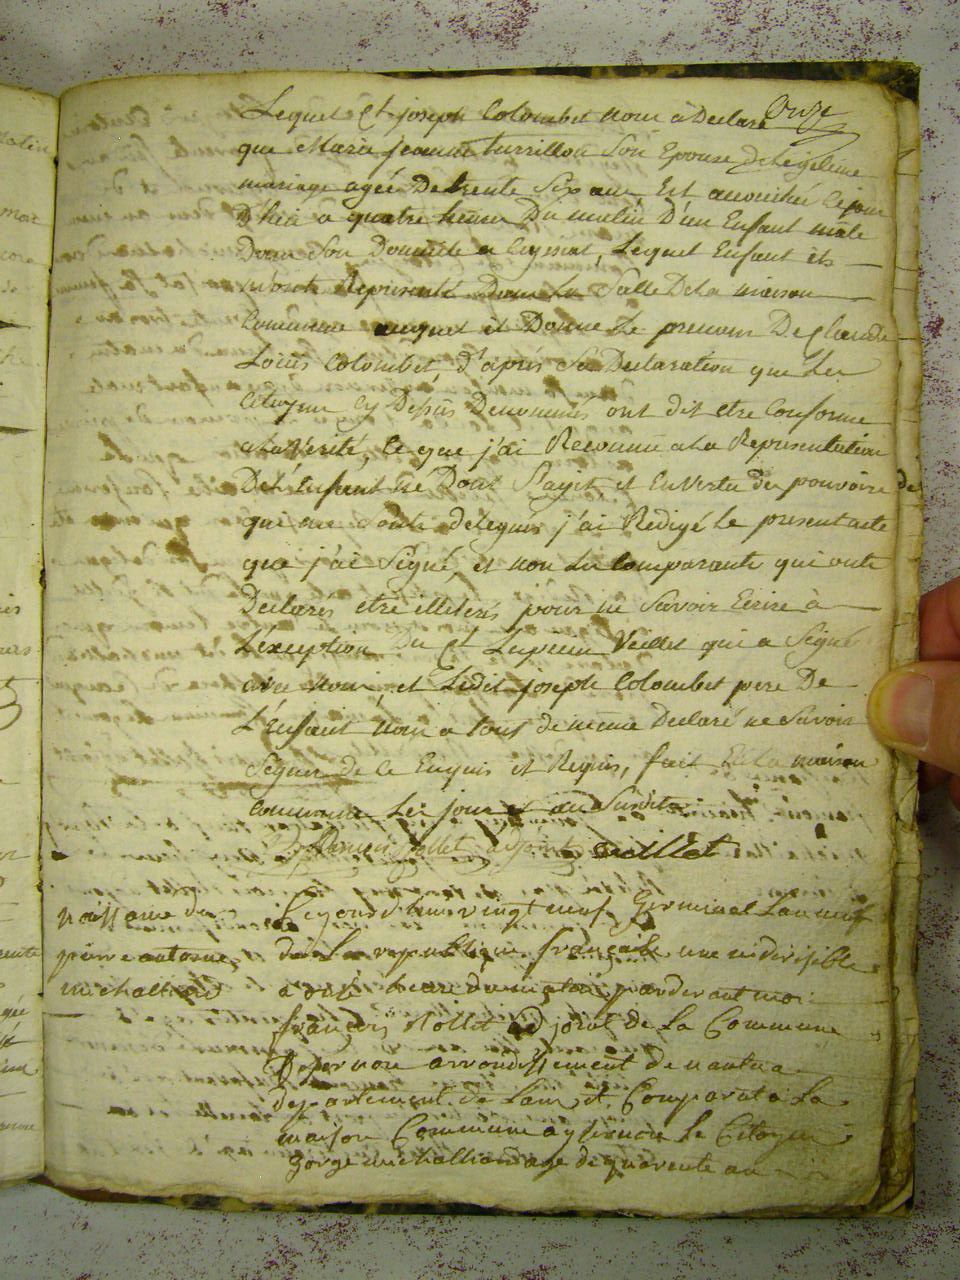 onze
Lequel Ct joseph Colombet nous a Declaré
que Marie jeanne turrillon Son Epouse de Legitime
mariage agée De trente Six ans Est accouchée Ce jour
D'hier a quatre heures Du matin D'un Enfant mâle
Dans Son Domicile a Ceyssiat, Lequel Enfant ets
Représenté Dans La Salle De La maison
Commune auquel il Donne Le prenom De Claude
Louis Colombet, D'aprés Sa Declaration que Les
Citoyens Cy Depûs Denommés ont dit etre Conforme
a La Verité, Ce que j'ai Reconnu a La Representation
De L'Enfant De Dont S'agit et En Vertu des pouvoirs de
qui me Sonts delegués j'ai Redigé Le present acte
que j'ai Signé, et non Les Comparants qui onts
Declarés etre illeterés pour ne Savoir Ecrire à
L'éxception Du Ct Lupicin Veillet qui a Signé
avec Nous, et Ledit joseph Colombet pere De
L'Enfant nous a tous de même Declaré ne Savoir
Signer de Ce Enquis et Requis, fait En La maison
Commune Les jour et an Susdits
françois Mollet adjoint
naissance de
pierre antoine
michalliard
Le jourdhui vingt neuf Germinal Lan neuf
de La republique française une indivisible
a dix heure du matin pardevant moi
françois Mollet adjoint de La Commune
arrondissement de nantua
departement de Lain, et Comparut a La
maison Commune le Citoyen
Gorge michalliard age de quarente an